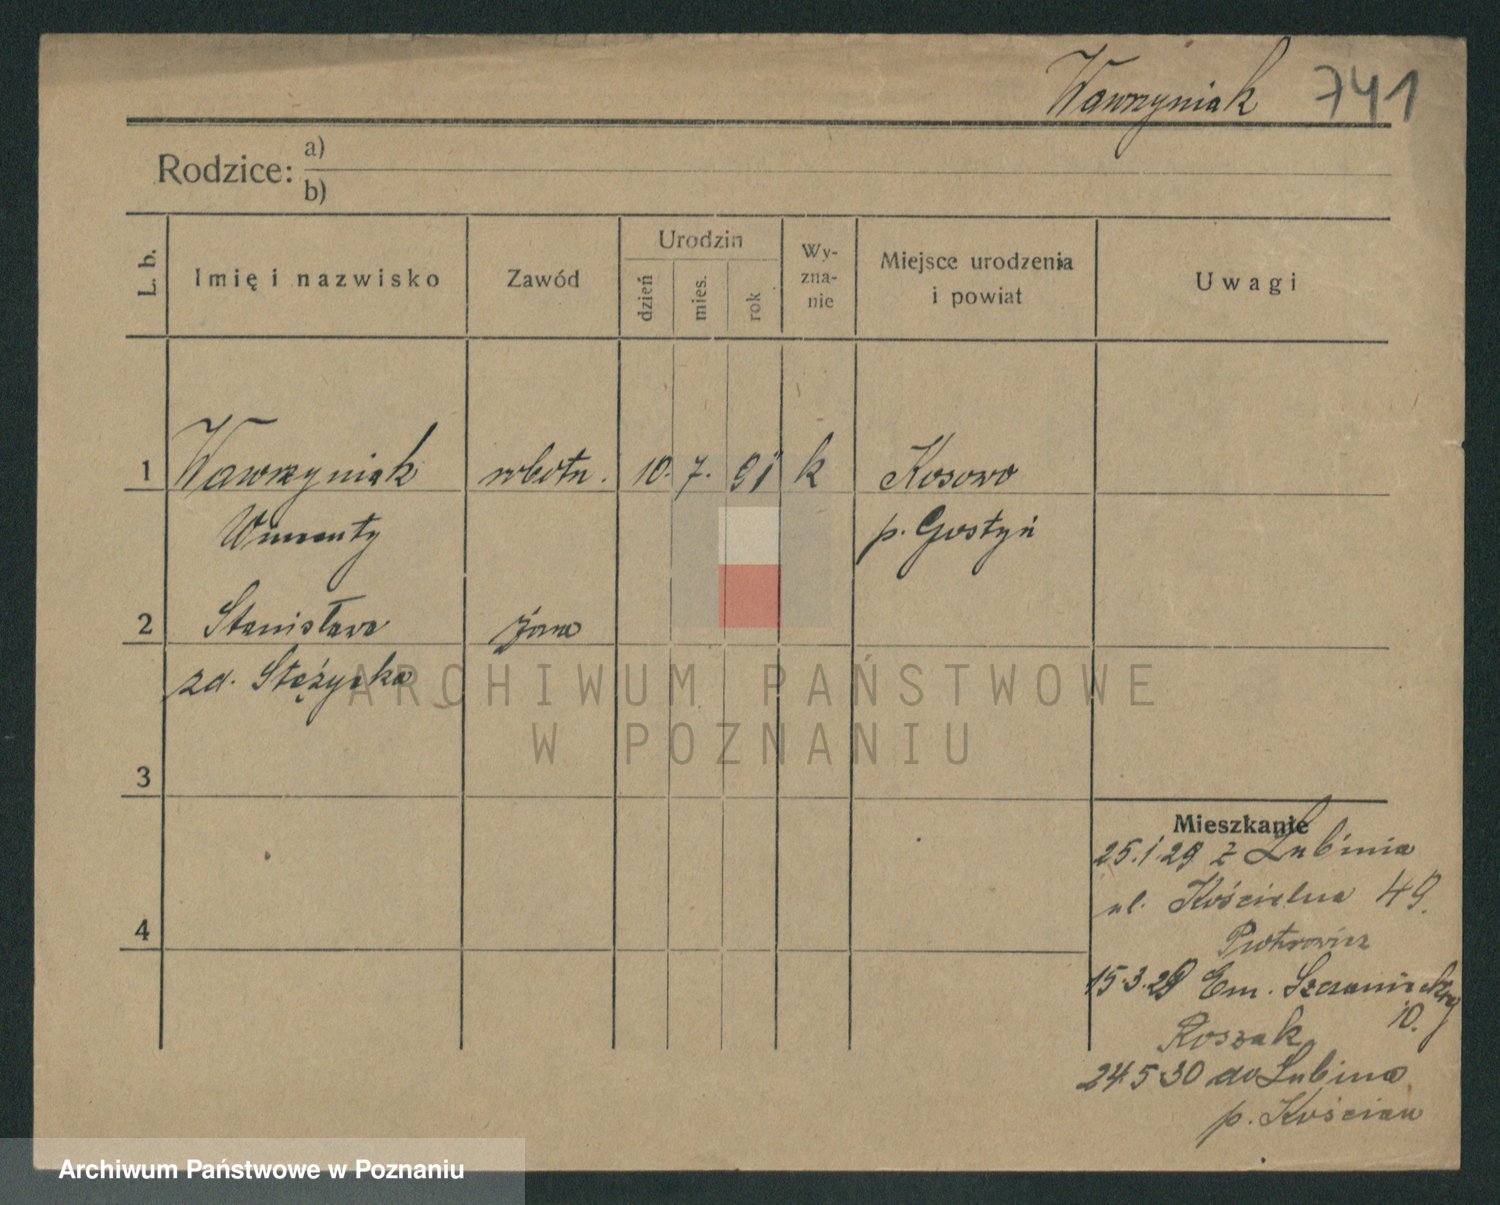 Wawrzyniak 741
Rodzice: a)
b)
L. b. Imię i nazwisko Zawód Urodzin dzień mies. rok Wy-zna-nie Miejsce urodzenia i powiat Uwagi
1 Wawrzyniak robotn. 10. 7. 91 k Kosowo
p. Gostyń
2 Stanisława żona
zd. Stężycka
ARCHIWUM PAŃSTWOWE
W POZNANIU
3
Mieszkanie
25.1 29 z Lubinia
ul. Kościelna 49.
4
Piotrowicz
15.3.29 Em. Szczanieckiej
10.
Roszak
24 5 30 do Lubinia
p. Kościan
Archiwum Państwowe w Poznaniu